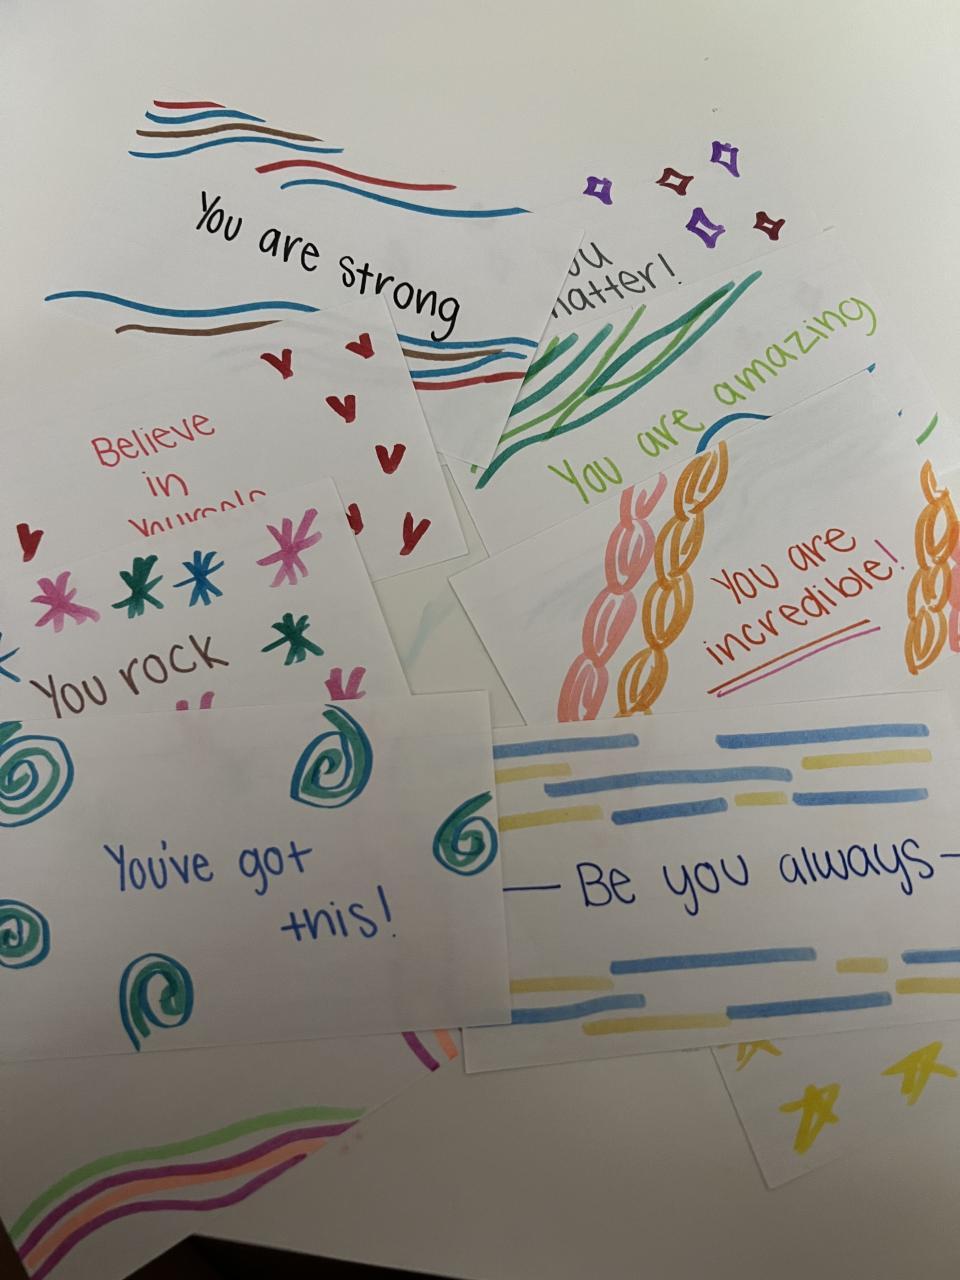 You are strong
ou
natter!
You are amazing
Believe
in
Yourself
You are
incredible!
You rock
You've got
this!
- Be you always -